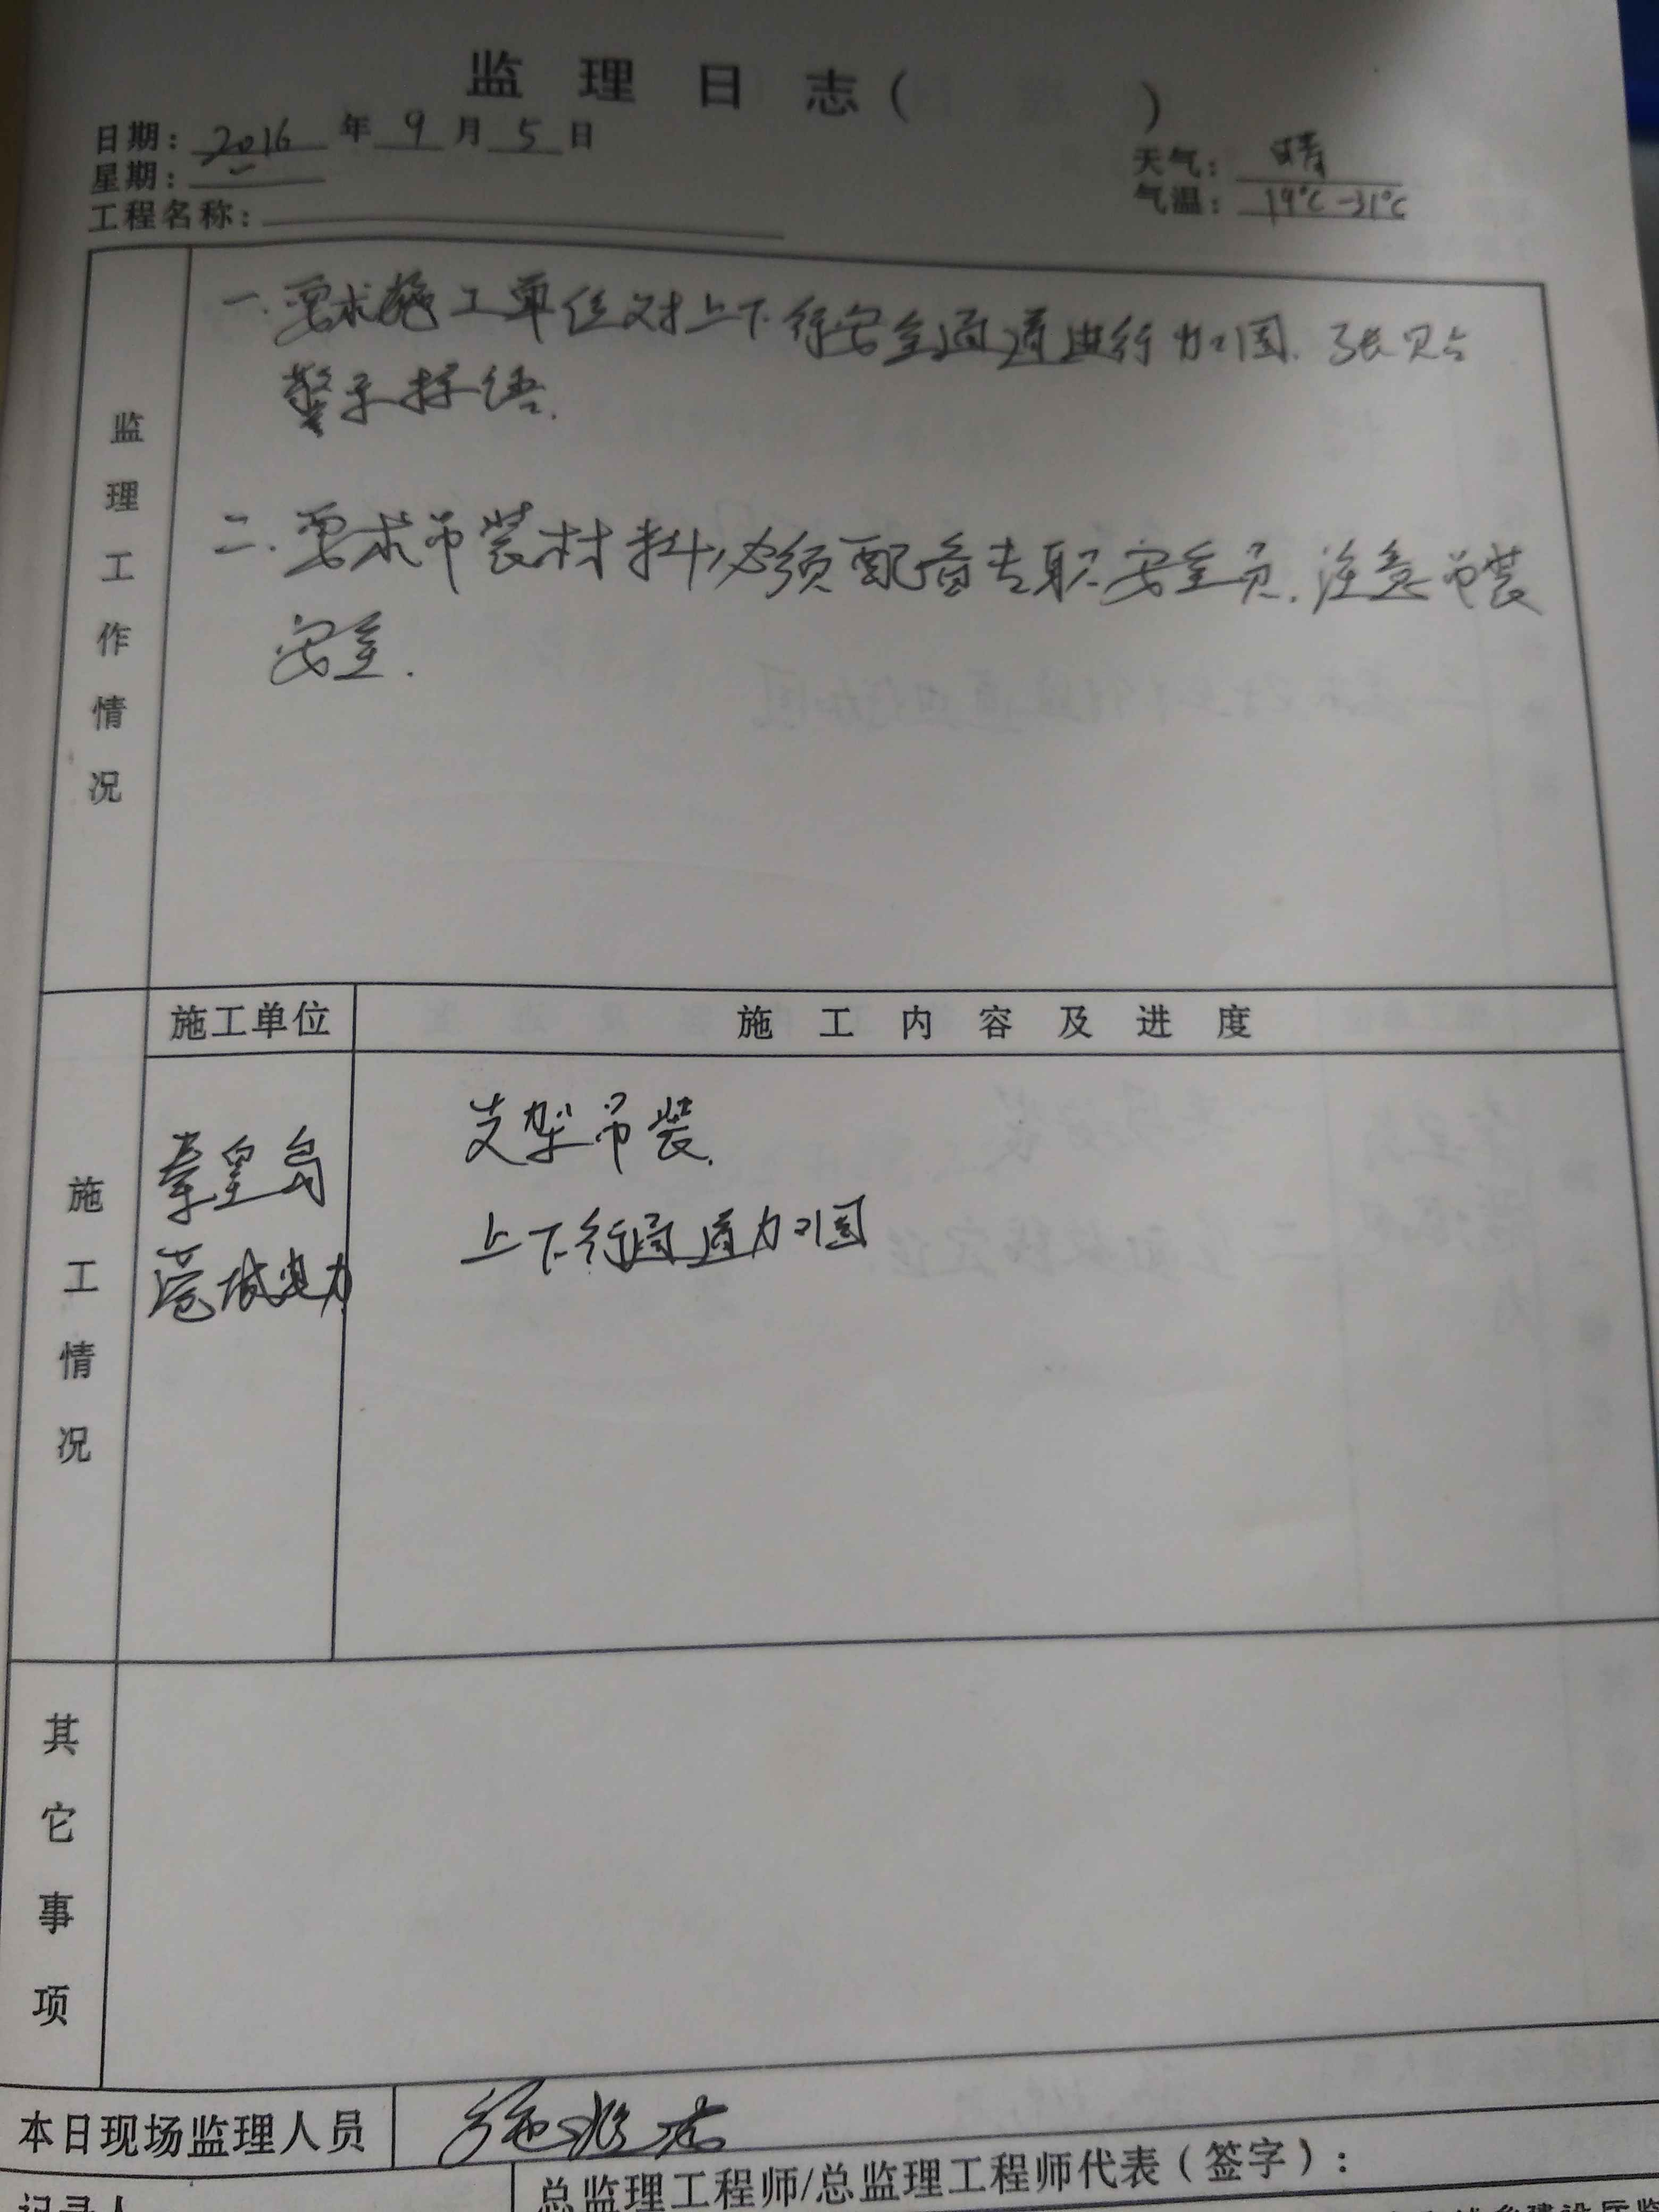 监理日志（ ）
日期：2016年9月5日
星期：一
天气：晴
气温：19℃-31℃
工程名称：
监理工作情况
一.要求施工单位对上下行安全通道进行加固.张贴
警示标语.
二.要求吊装材料必须配备专职安全员.注意吊装
安全.
施工情况
施工单位
施工内容及进度
秦皇岛
电力
支架吊装.
上下行通道加固
其它事项
本日现场监理人员
记录人
总监理工程师/总监理工程师代表（签字）：